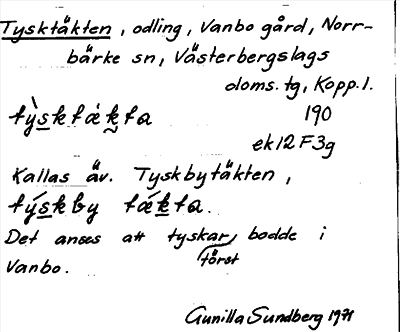 Tysktäkten, odling, Vanbo gård, Norr-
bärke sn, Västerbergslags
doms. tg, Kopp. l.
190
ek 12 F 3g
Kallas äv. Tyskbytäkten,
Det anses att tyskar, bodde i
först
Vanbo.
Gunilla Sundberg 1971